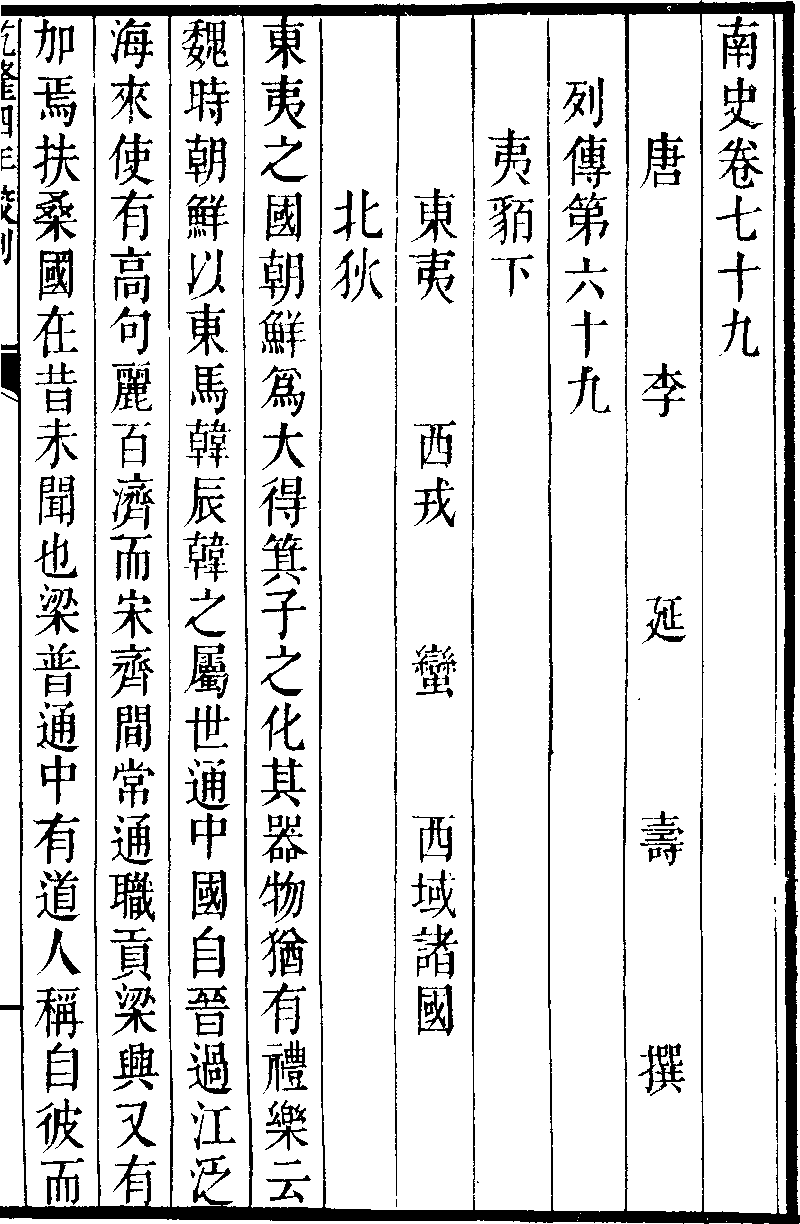 南史卷七十九
唐 李 延 壽 撰
列傳第六十九
夷貊下
東夷 西戎 蠻 西域諸國
北狄
東夷之國朝鮮爲大得箕子之化其器物猶有禮樂云
魏時朝鮮以東馬韓辰韓之屬世通中國自晉過江泛
海來使有高句麗百濟而宋齊間常通職貢梁興又有
加焉扶桑國在昔未聞也梁普通中有道人稱自彼而
乾隆四年校刊